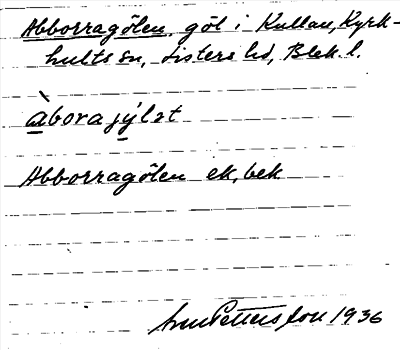 Abborragölen, göl i Kullan, Kyrk-
hults sn, Listers hd, Blek. l.
àborajýlət
Abborragölen ek, bek
1936